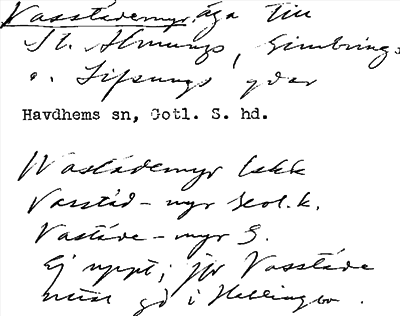 Vasstädemyr, äga till
St. Almungs, Simbrings
o. Sifsungs gdar
Havdhems sn, Gotl. S. hd.
Wastädemyr lskk
Vasstäd-myr Geol.k.
Vastäde-myr G.
Ej uppt; jfr Vasstäde
gd i Hellingbo.